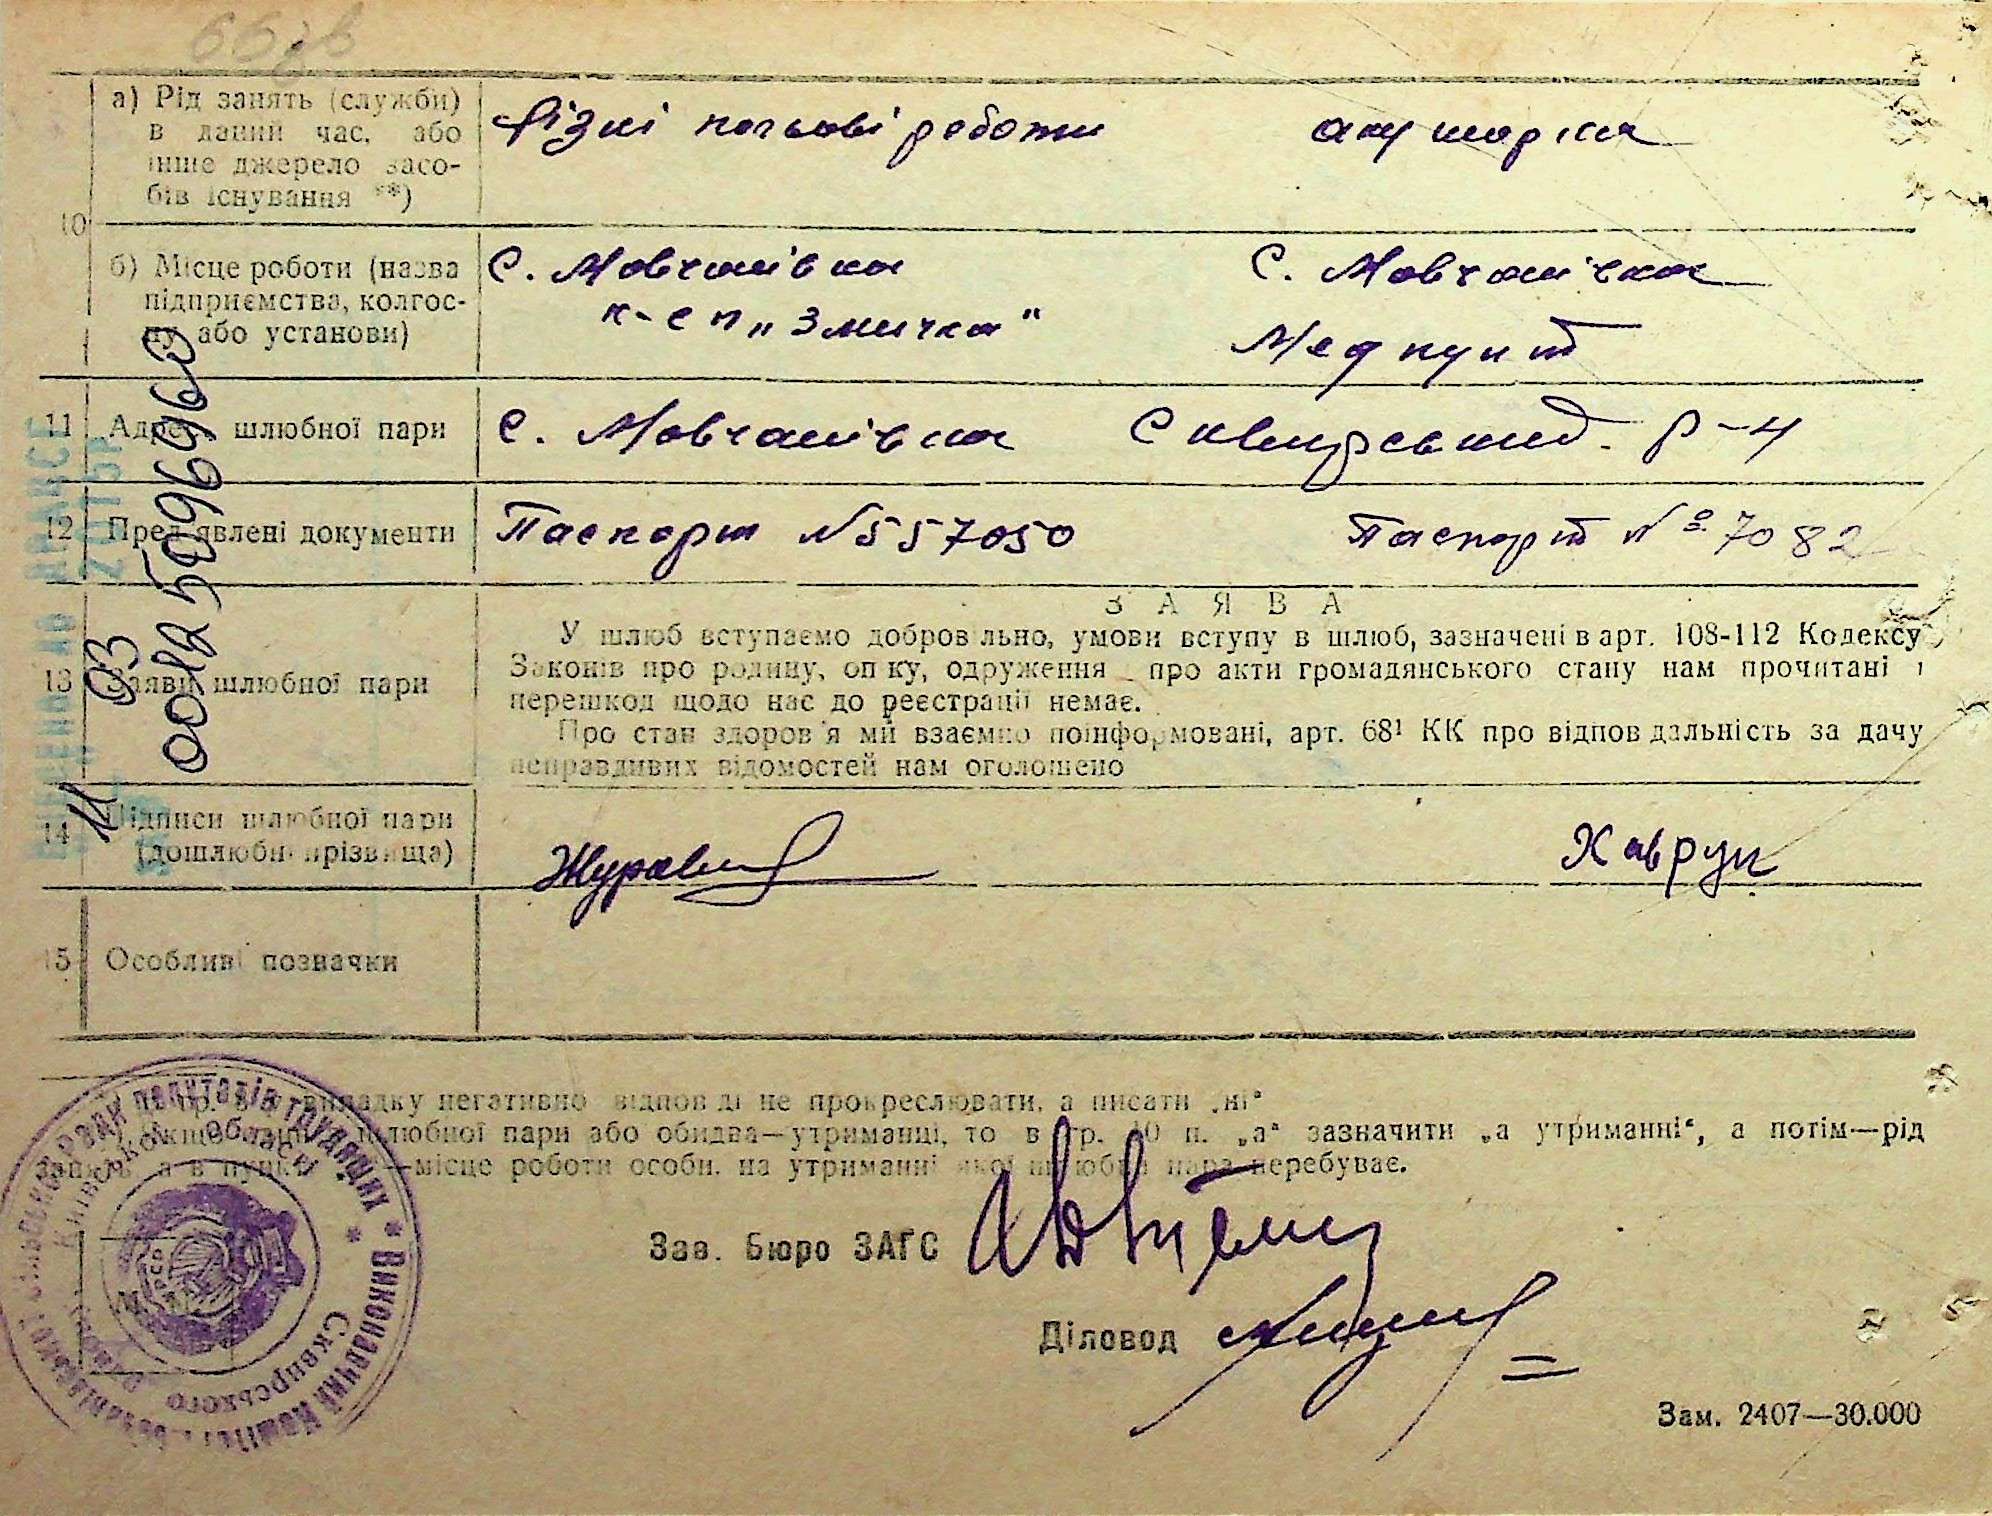 а) Рід занять (служби)
в даний час, або
інше джерело засо-
бів існування **)
Різні польові роботи акушерка
10
б) Місце роботи (назва
підприємства, колгос-
пу або установи)
с. Мовчанівка
к-сп „Змичка"
с. Мовчанівка
Медпункт
11 Адреса шлюбної пари
с. Мовчанівка Сквирський р-н
12 Пред'явлені документи
Паспорт N 557050 Паспорт № 7082
13 Заяви шлюбної пари
ЗАЯВА
У шлюб вступаємо добров льно, умови вступу в шлюб, зазначені в арт. 108-112 Кодексу
Законів про родину, оп ку, одруження про акти громадянського стану нам прочитані і
перешкод щодо нас до реєстрації немає.
Про стан здоров'я ми взаємно поінформовані, арт. 68¹ КК про відпов дальність за дачу
неправдивих відомостей нам оголошено
14 Підписи шлюбної пари
(дошлюбні прізвища)
Хаврук
15 Особливі позначки
11 03
00112 5096963
випадку негативно відпов ді не прокреслювати, а писати „ні"
шлюбної пари або обидва—утриманці, то в гр. 10 п. „а" зазначити „а утриманні", а потім—рід
занять а в пункті —місце роботи особи, на утриманні якої шлюбна пара перебуває.
Зав. Бюро ЗАГС
Діловод
Зам. 2407—30.000
Виконавчий Комітет
депутатів трудящих
Сквирського
Київської області